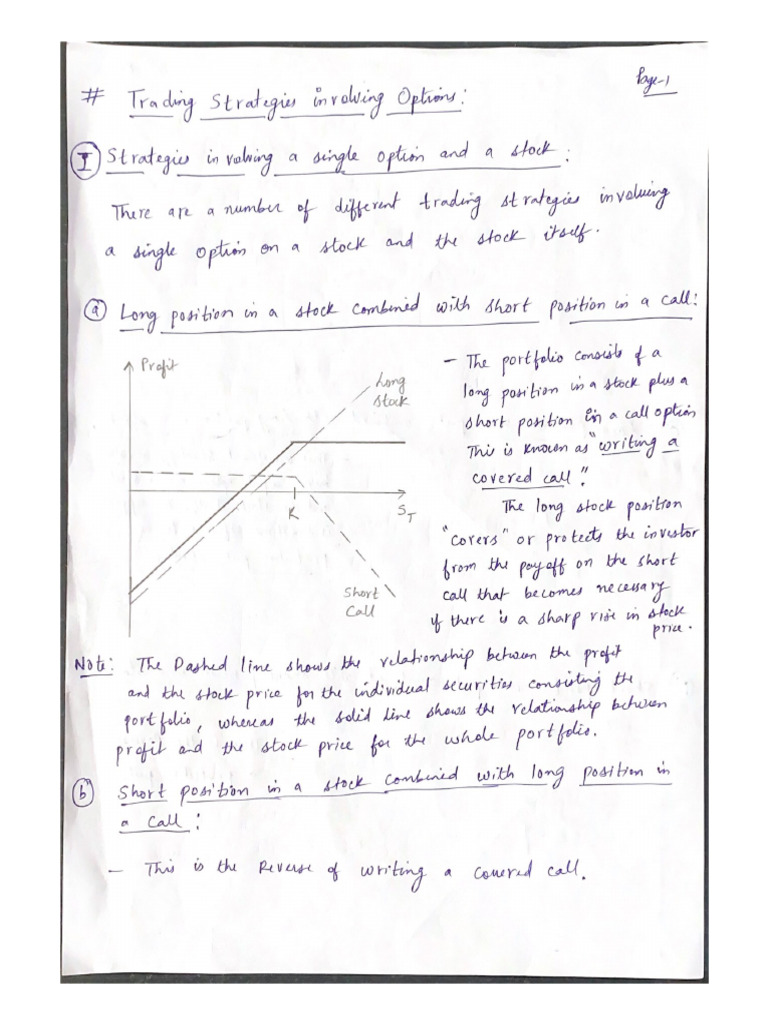 Page-1
# Trading Strategies involving Options:
I Strategies involving a single option and a stock:
There are a number of different trading strategies involving
a single option on a stock and the stock itself.
a Long position in a stock combined with short position in a call:
Profit
Long
stock
K
ST
Short
Call
- The portfolio consists of a
long position in a stock plus a
short position in a call option
This is known as "writing a
covered call".
The long stock position
"covers" or protects the investor
from the payoff on the short
call that becomes necessary
if there is a sharp rise in stock
price.
Note: The Dashed line shows the relationship between the profit
and the stock price for the individual securities consisting the
portfolio, whereas the solid line shows the relationship between
profit and the stock price for the whole portfolio.
b Short position in a stock combined with long position in
a call:
- This is the Reverse of writing a covered call.